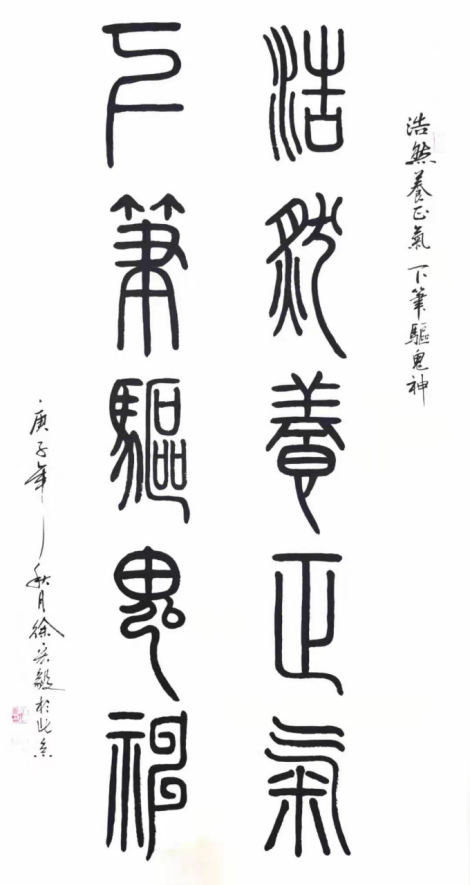 浩然養正氣 下筆驅鬼神
浩然養正氣
下筆驅鬼神
庚子年秋月徐宗毅於北京